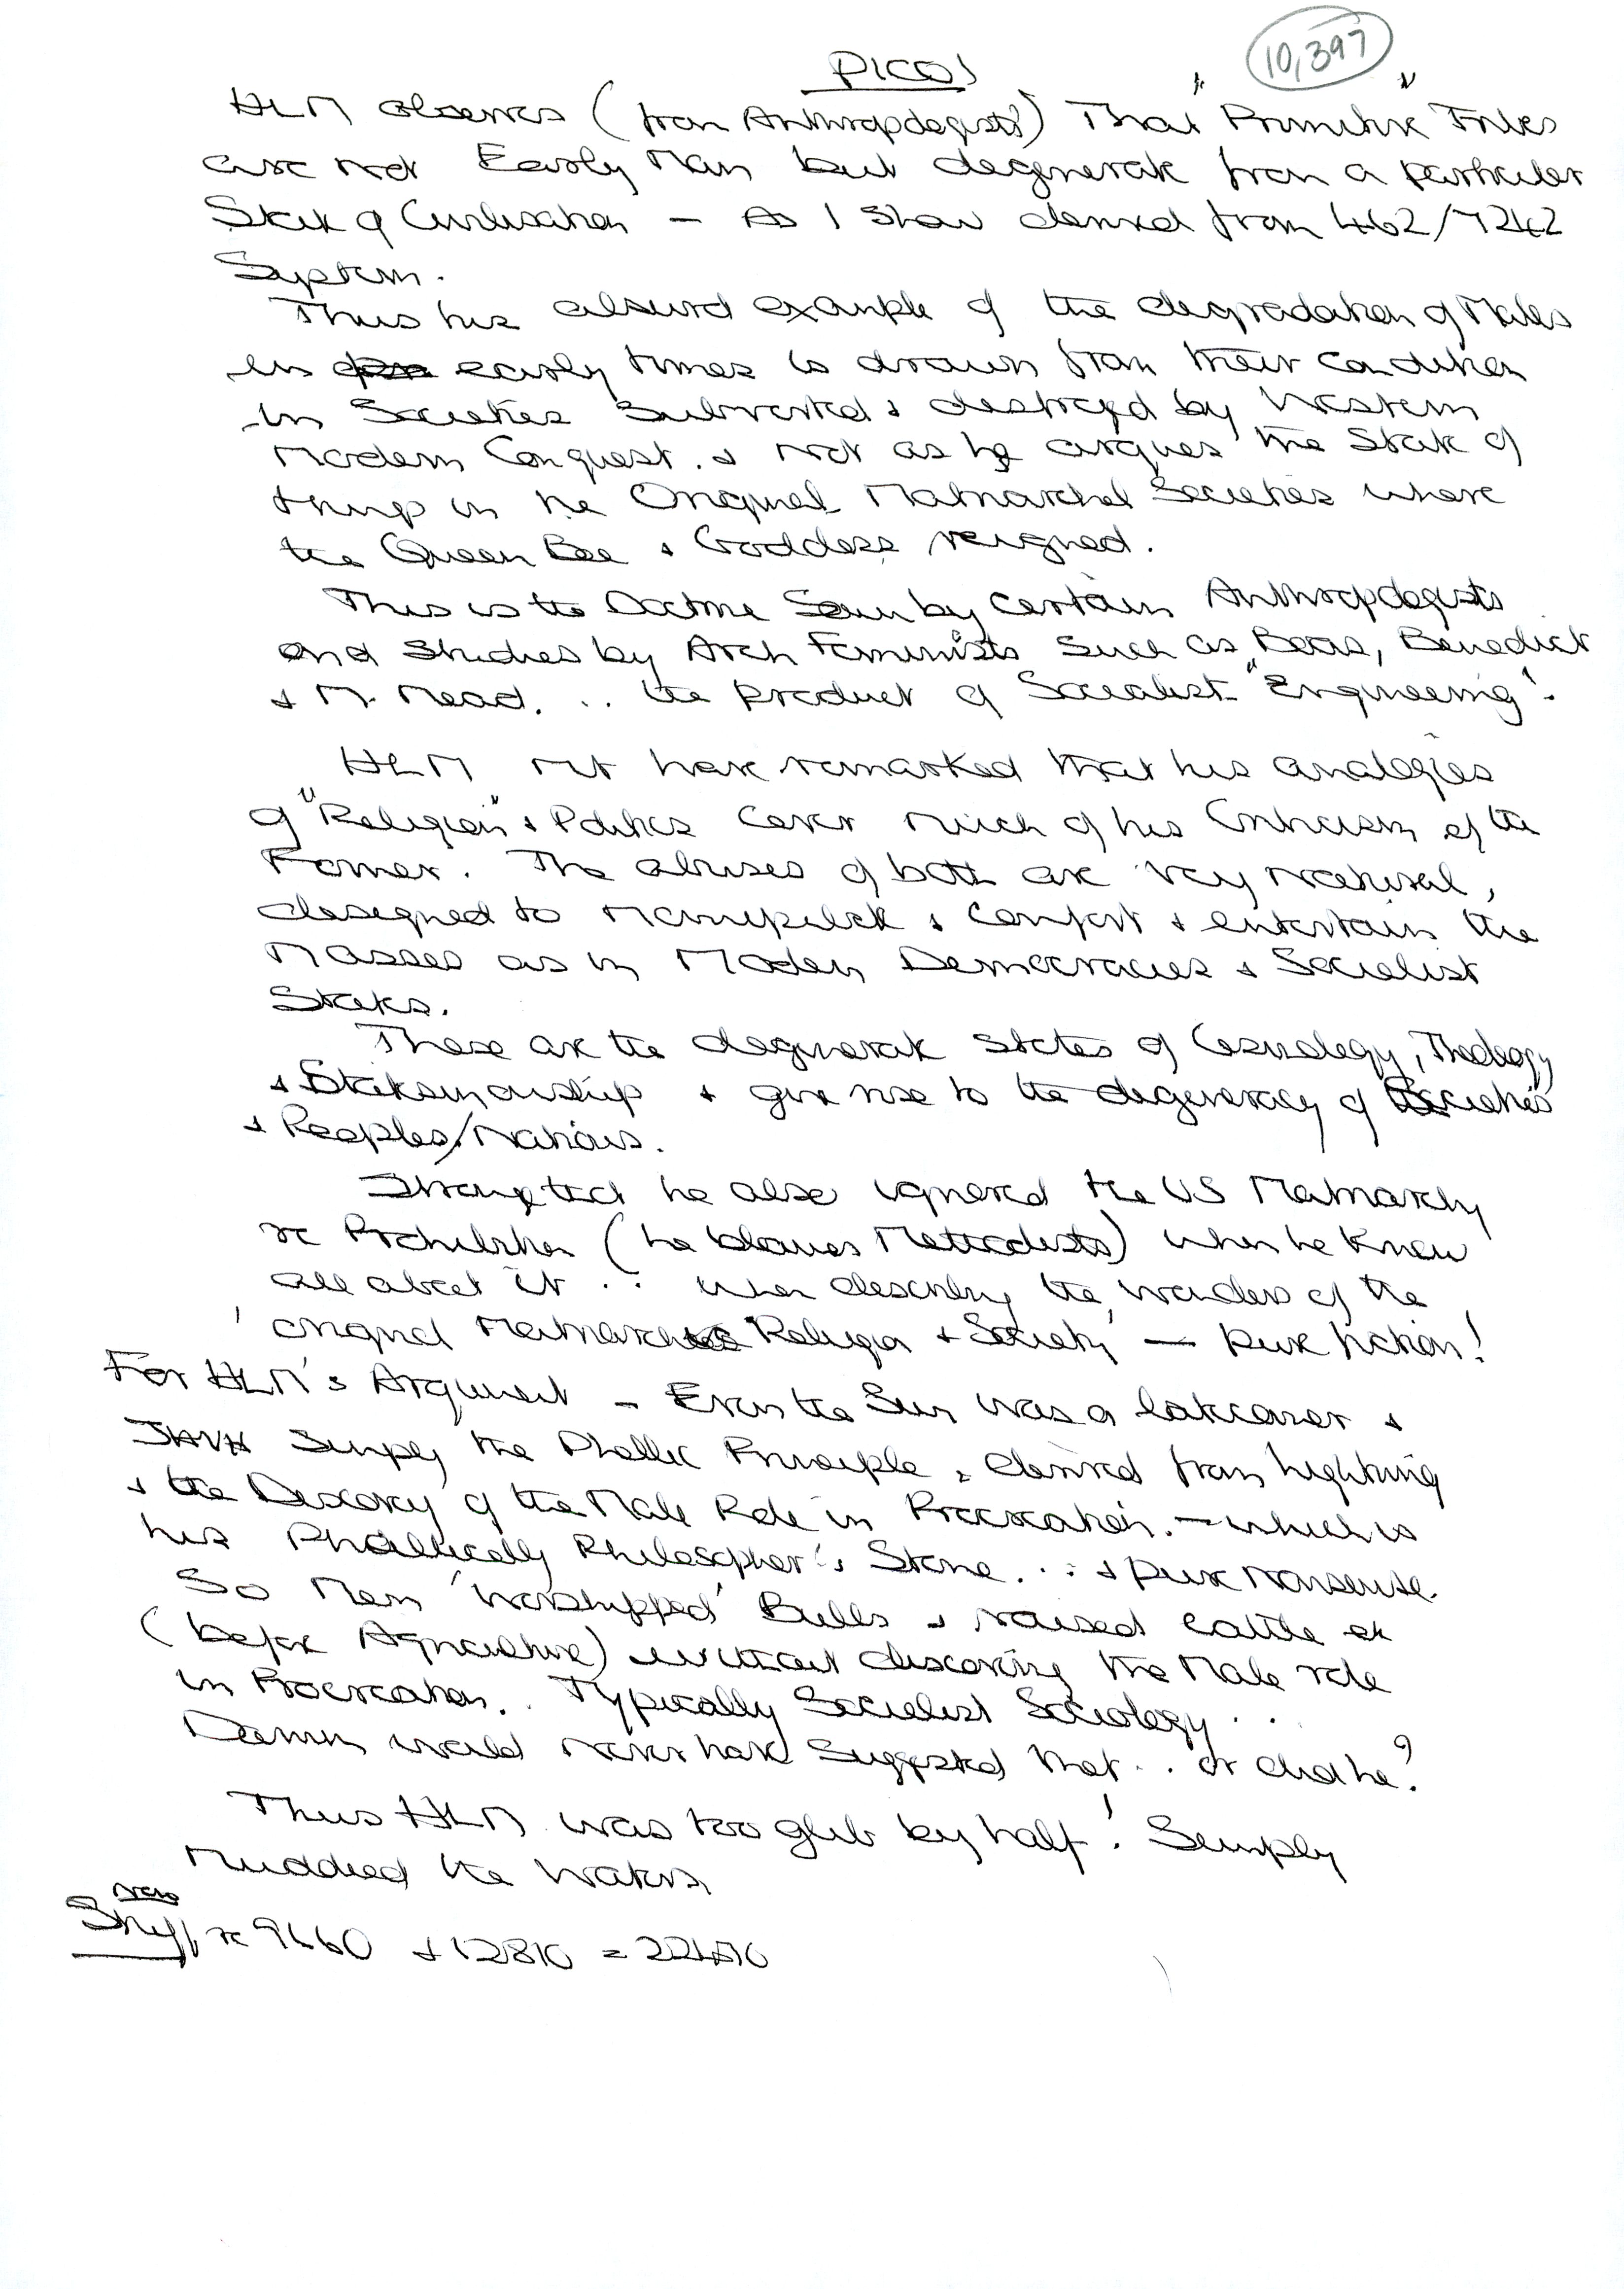 10,397
PICOS
HLM observes (from Anthropologists) That "Primitive" Tribes
are not Early Man but degenerate from a particular
State of Civilisation — As I show derived from 462/7242
System.
Thus his absurd example of the degradation of Males
in early times is drawn from their condition
in Societies Subverted & destroyed by Western
Modern Conquest. & not as he argues the State of
things in the Original Matriarchal Societies where
the Queen Bee & Goddess reigned.
This is the Doctrine Sown by Certain Anthropologists
and Studies by Arch Feminists Such as Boas, Benedict
& M. Mead. .. the product of Socialist "Engineering".
HLM have remarked that his analogies
of "Religion" & Politics Cover Much of his Criticism of the
Former. The abuses of both are Very Natural,
designed to Manipulate & Comfort & entertain the
Masses as in Modern Democracies & Socialist
States.
These are the degenerate States of Cosmology, Theology
& Statesmanship & give rise to the degeneracy of Societies
& Peoples/Nations.
Strange that he also ignored the US Matriarchy
re Prohibition (he blames Methodists) when he Knew
all about it .: when describing the wonders of the
'original Matriarchal Religion & Society' — pure fiction!
For HLM's Argument - Even the Sun was a latecomer &
JHVH Simply the Phallic Principle, derived from lightning
& the Discovery of the Male Role in Procreation. — which is
his Phallically Philosopher's Stone. .: & pure nonsense.
So Men 'worshipped' Bulls & raised Cattle etc
(before Agriculture) without discovering the Male role
in Procreation. . Typically Socialist Sociology . .
Darwin would never have Suggested that .. or did he?
Thus HLM was too glib by half! Simply
Muddied the Waters
re 9660 + 12810 =